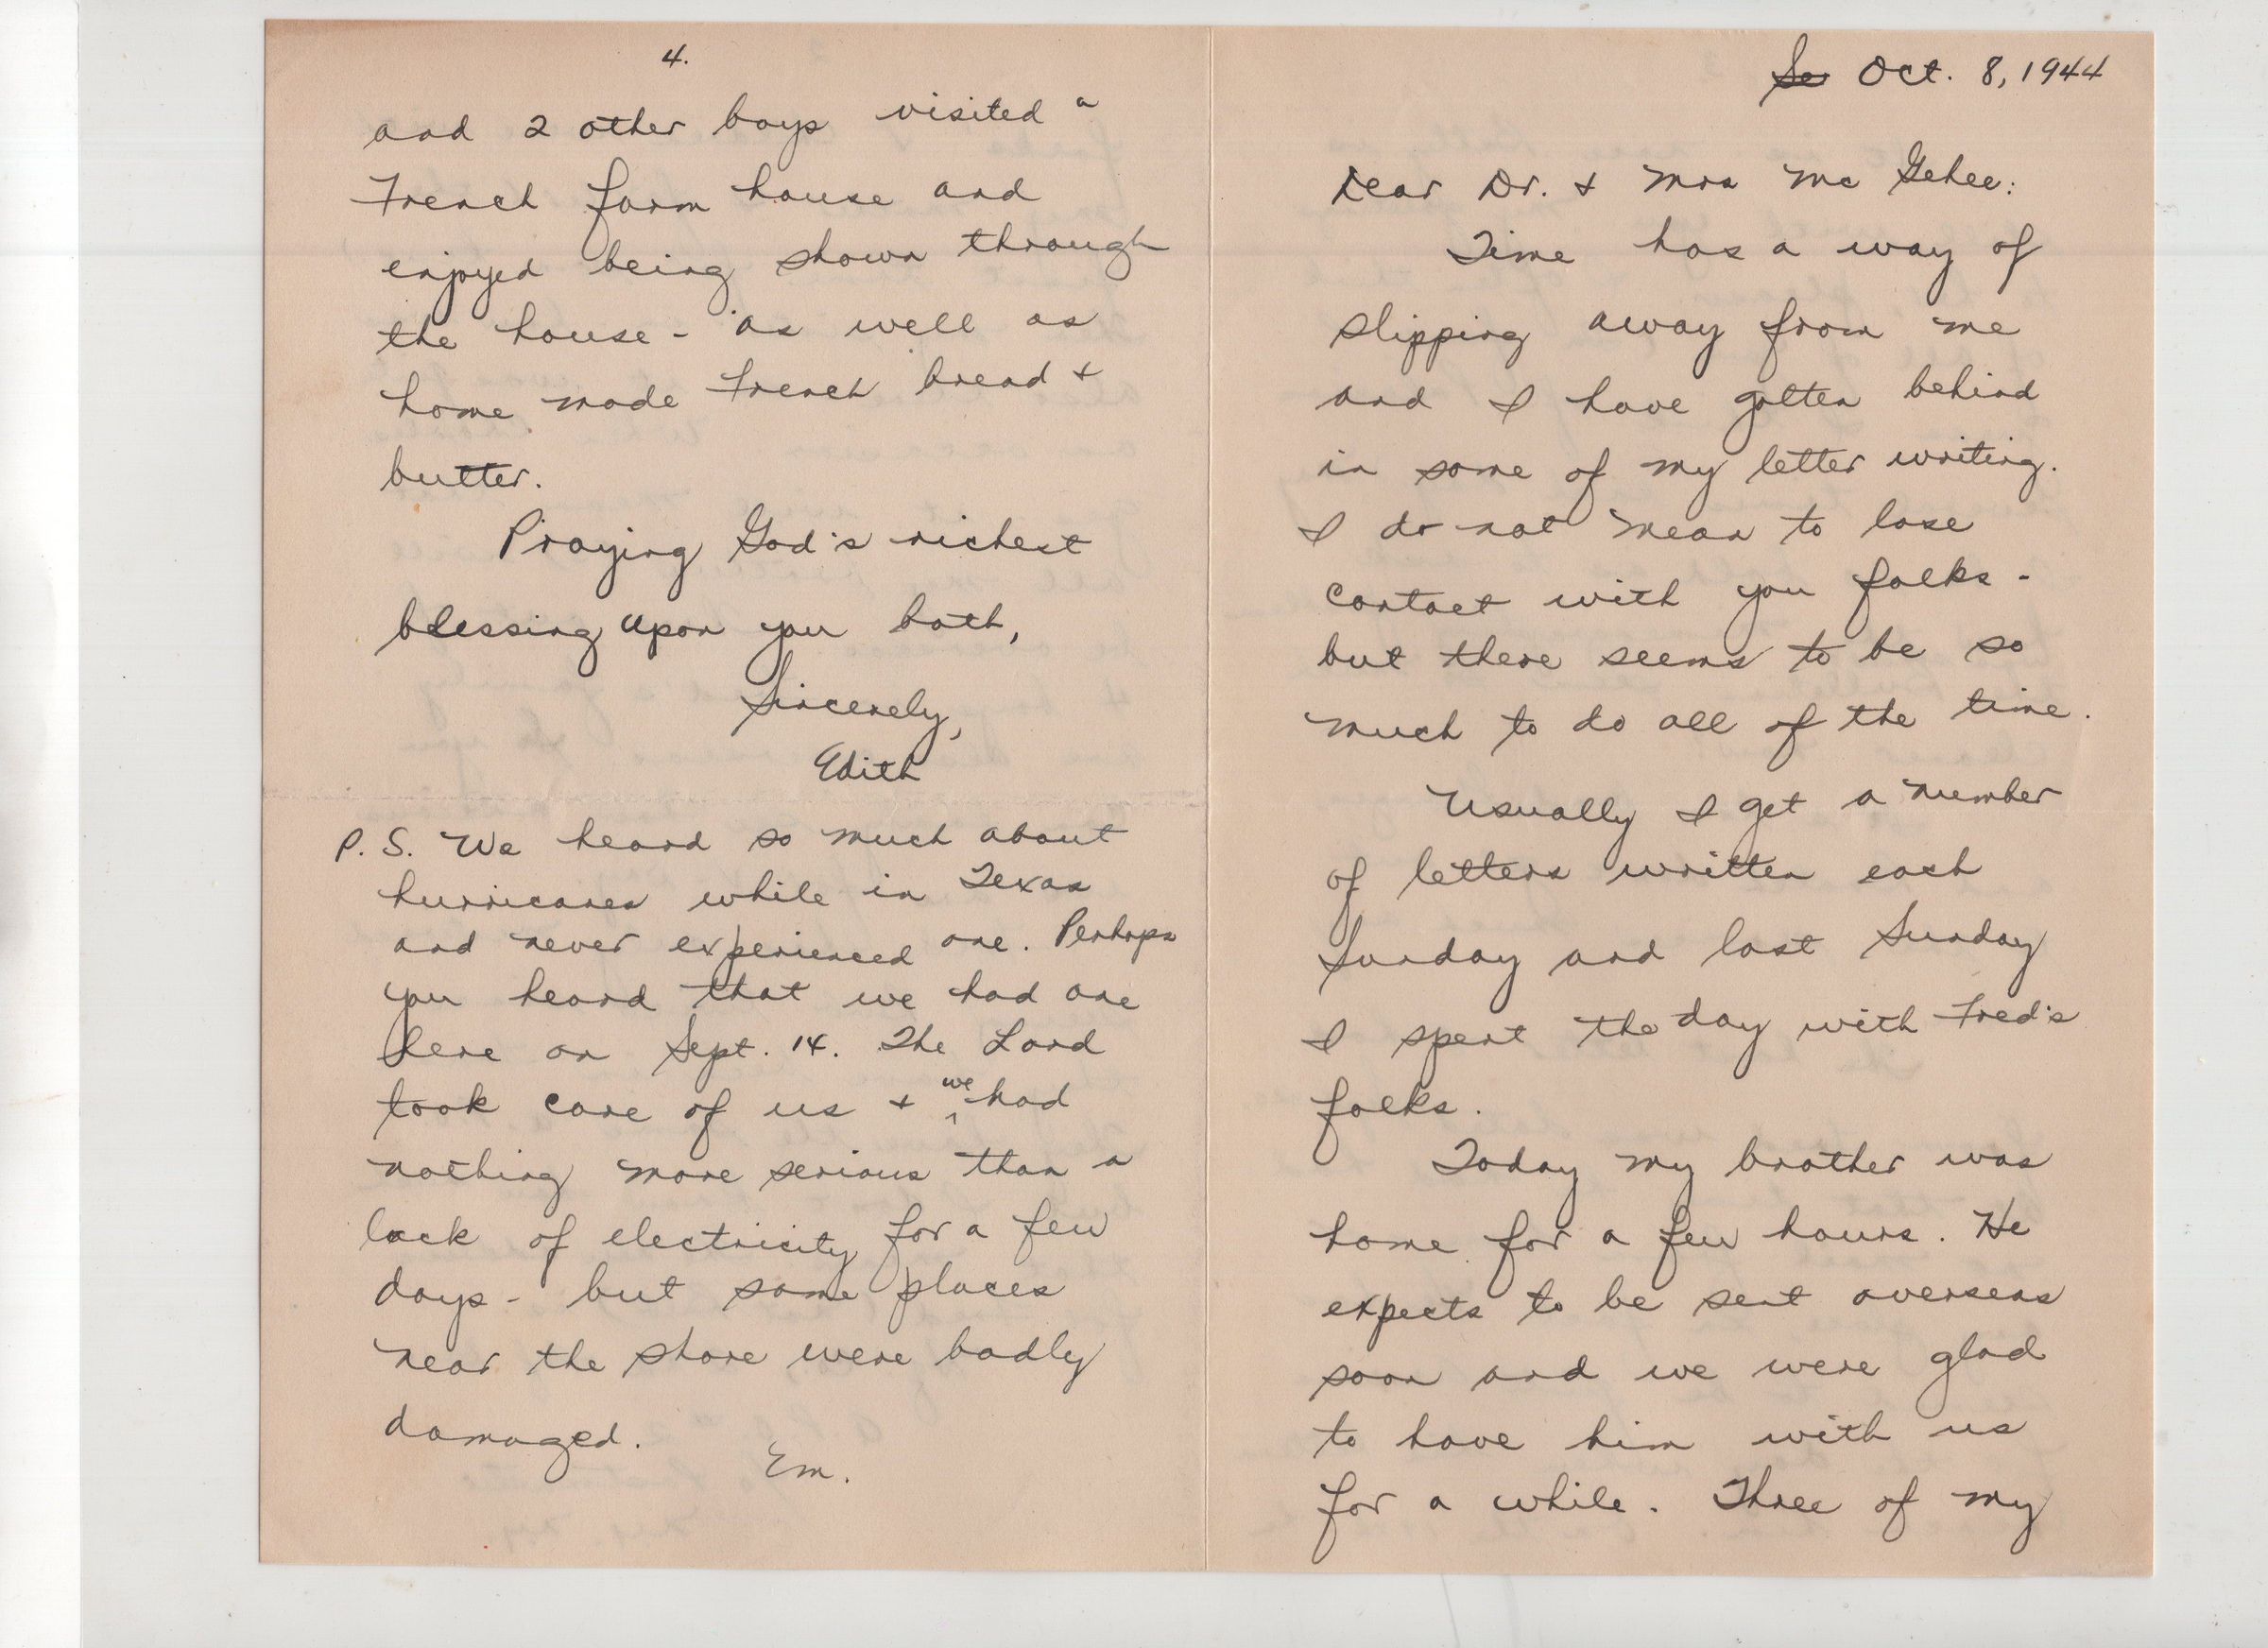 4.
and 2 other boys visited a
French farm house and
enjoyed being shown through
the house - as well as
home made French bread &
butter.
Praying God's richest
blessing upon you both,
Sincerely,
Edith
P. S. We heard so much about
hurricanes while in Texas
and never experienced one. Perhaps
you heard that we had one
here on Sept. 14. The Lord
took care of us & we had
nothing more serious than a
lack of electricity for a few
days - but some places
near the shore were badly
damaged.
Em.
Se Oct. 8, 1944
Dear Dr. & Mrs Mc Gehee:
Time has a way of
slipping away from me
and I have gotten behind
in some of my letter writing.
I do not mean to lose
contact with you folks -
but there seems to be so
much to do all of the time.
Usually I get a number
of letters written each
Sunday and last Sunday
I spent the day with Fred's
folks.
Today my brother was
home for a few hours. He
expects to be sent overseas
soon and we were glad
to have him with us
for a while. Three of my